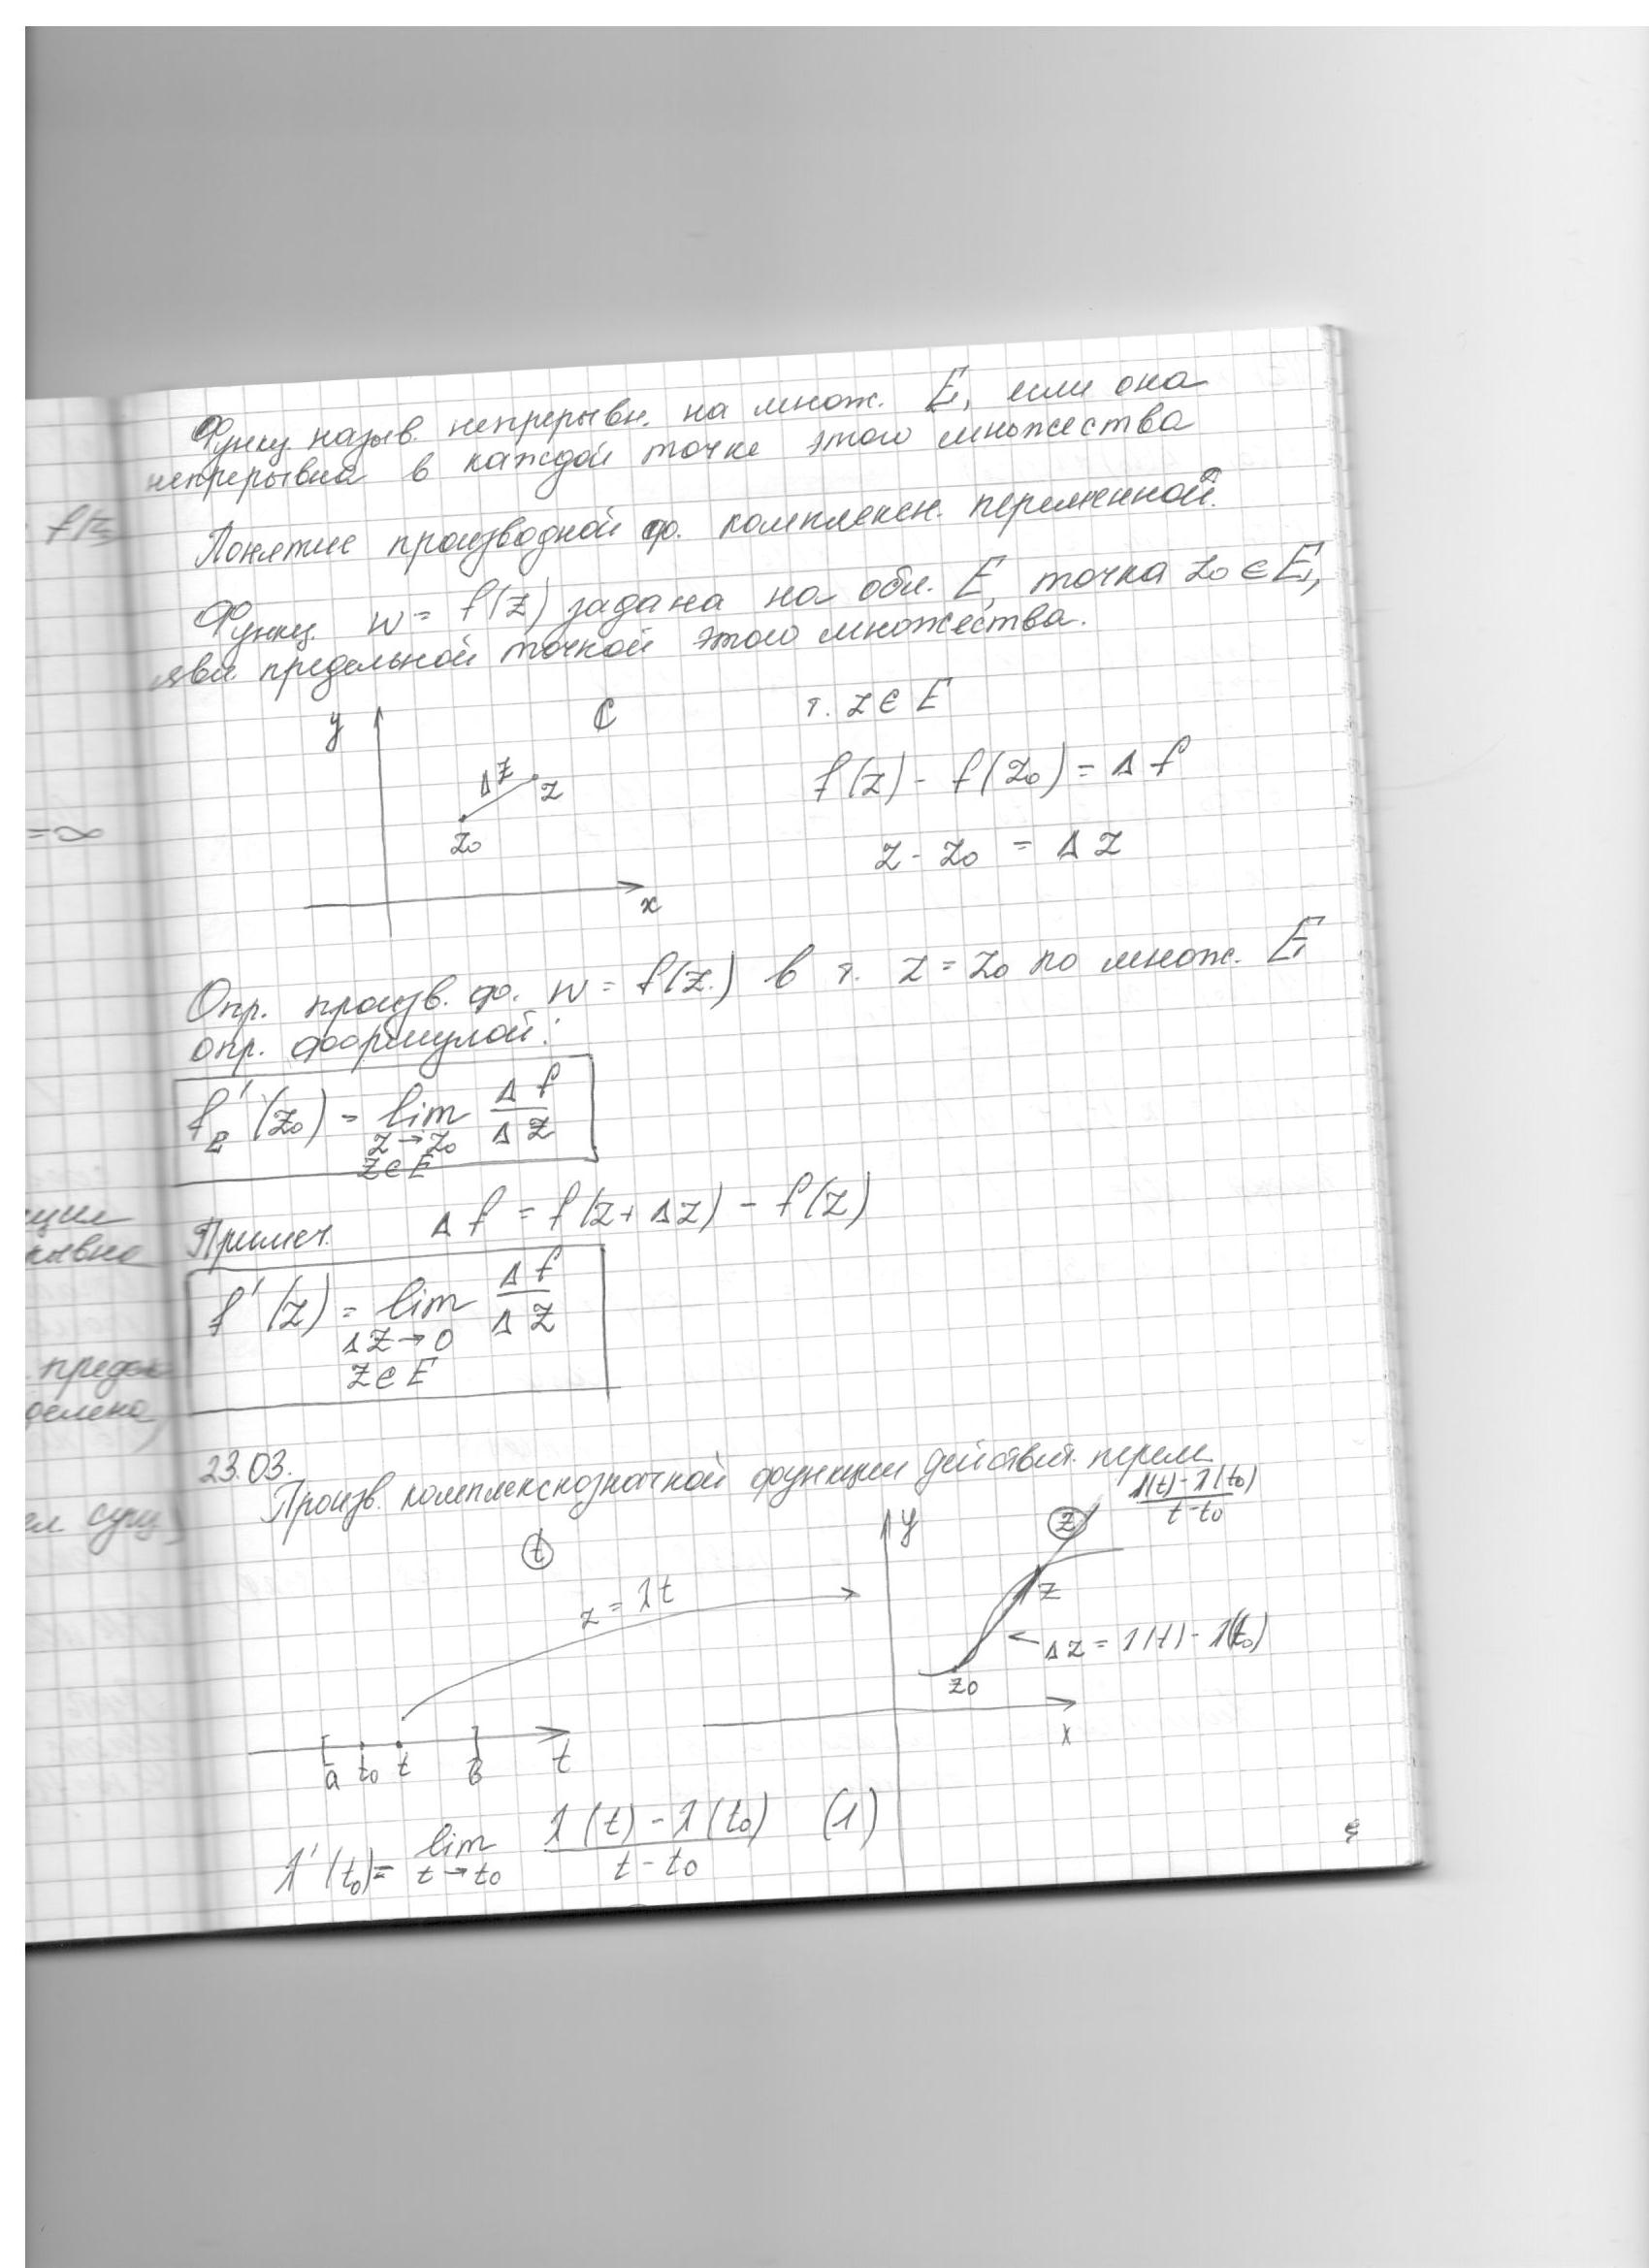 Функц. назыв. непрерывн. на множ. E, если она
непрерывна в каждой точке этого множества
Понятие производной ф. комплексн. переменной.
Функц. w = f(z) задана на обл. E, точка z₀ ∈ E,
явл. предельной точкой этого множества.
y
ℂ
т. z ∈ E
Δz
z
z₀
x
f(z) - f(z₀) = Δf
z - z₀ = Δz
Опр. произв. ф. w = f(z) в т. z = z₀ по множ. E
опр. формулой:
f'_E(z₀) = lim Δf/Δz
z→z₀
z∈E
Примеч. Δf = f(z+Δz) - f(z)
f'(z) = lim Δf/Δz
Δz→0
z∈E
23.03.
Произв. комплекснозначной функции действит. перем.
t
z = λt
a t₀ t b t
y
z
(λ(t) - λ(t₀))/(t - t₀)
z
Δz = λ(t) - λ(t₀)
z₀
x
λ'(t₀) = lim (λ(t) - λ(t₀))/(t - t₀) (1)
t→t₀
=∞